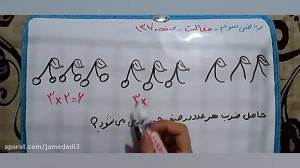 ریاضی سوم - فعالیت - صفحه ۱۳۷
۳×۲=۶
۳×
حاصل ضرب هر عدد در صفر می شود؟
aparat.com/jamedadi3